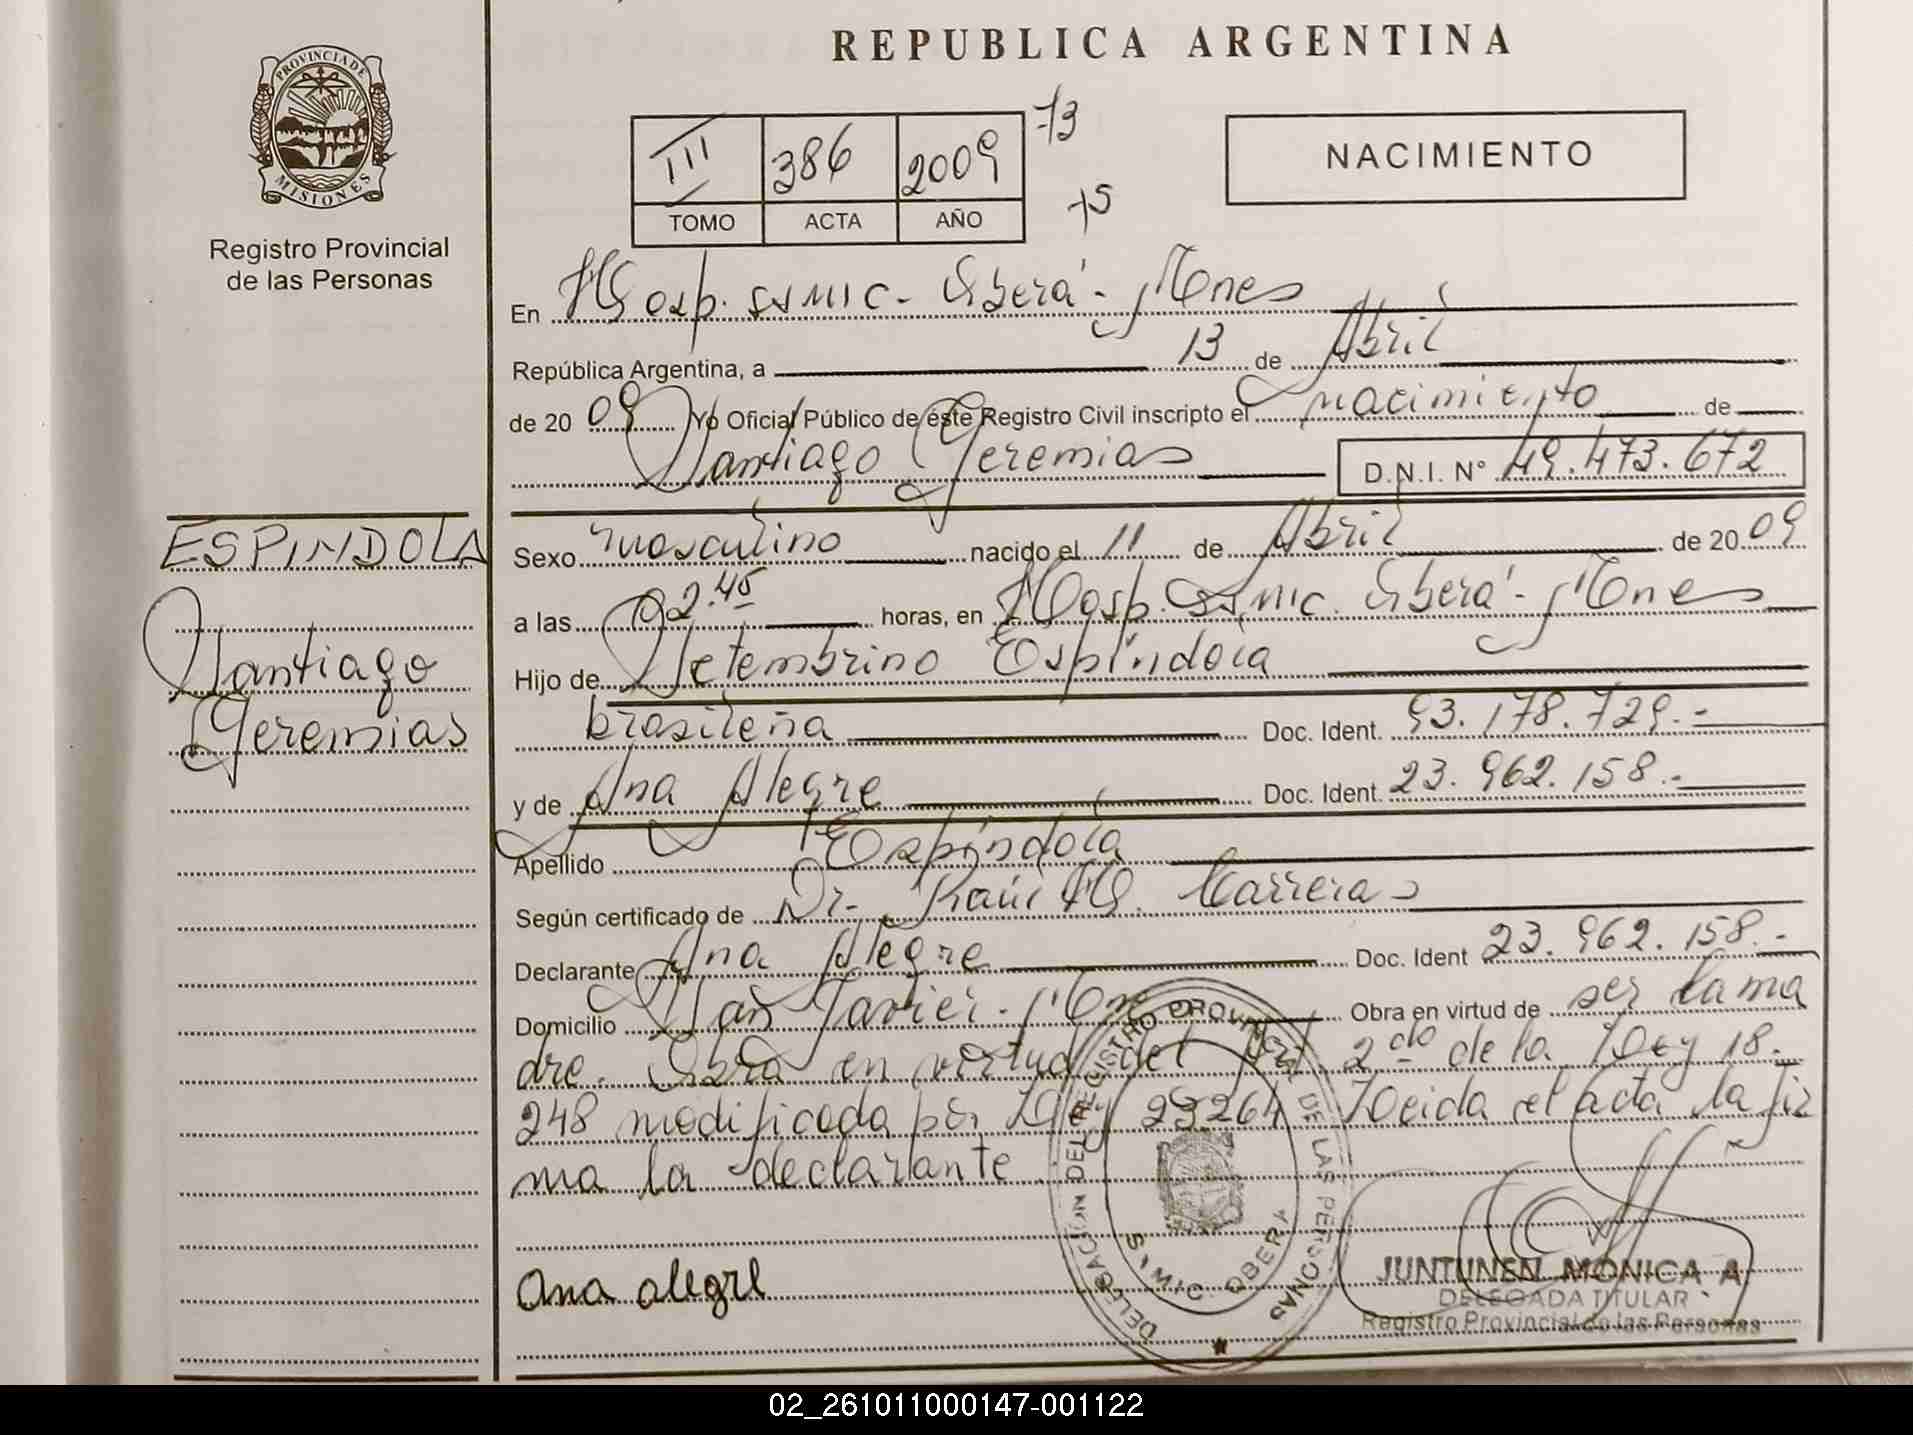 PROVINCIA DE
MISIONES
Registro Provincial
de las Personas
REPUBLICA ARGENTINA
III 386 2009
TOMO ACTA AÑO
NACIMIENTO
En Hosp. SSMIC - Oberá - Mnes
República Argentina, a 13 de Abril
de 20 09 Yo Oficial Público de éste Registro Civil inscripto el nacimiento de
Santiago Geremias D.N.I. N° 49.473.672
ESPINDOLA
Santiago
Geremias
Sexo masculino nacido el 11 de Abril de 20 09
a las 02.45 horas, en Hosp. SSMIC. Oberá - Mnes
Hijo de Setembrino Espíndola
brasileña Doc. Ident. 93.178.729.-
y de Ana Alegre Doc. Ident. 23.962.158.-
Apellido Espíndola
Según certificado de Dr. Raúl H. Carreras
Declarante Ana Alegre Doc. Ident 23.962.158.-
Domicilio San Javier - Mnes Obra en virtud de ser la ma
dre. Obra en virtud del Art 2do de la Ley 18.
248 modificada por Ley 23264 Leida el acta la fir
ma la declarante
Ana alegre
DELEGACIÓN DEL REGISTRO PROVINCIAL DE LAS PERSONAS
OBERA
JUNTUNEN MONICA A
DELEGADA TITULAR
Registro Provincial de las Personas
02_261011000147-001122